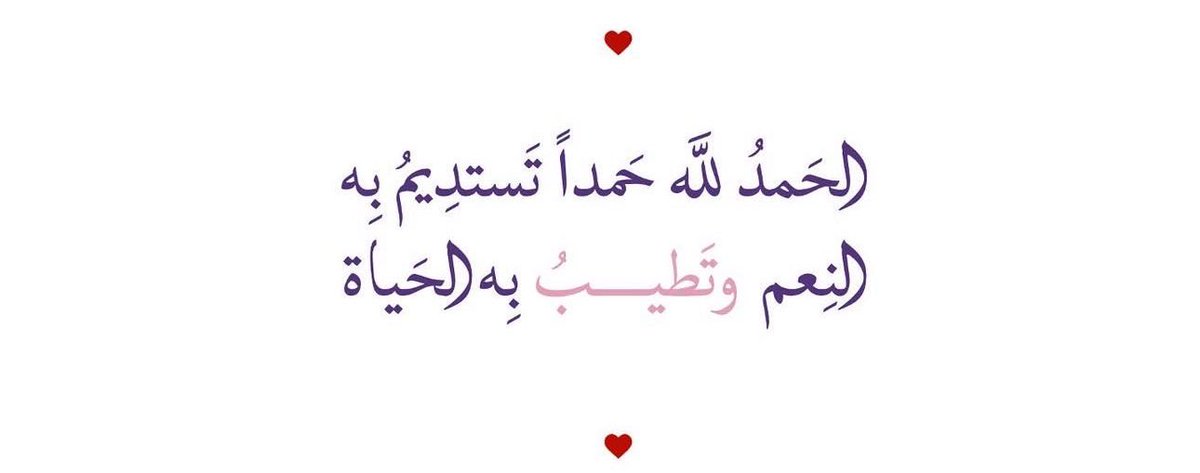 الحَمدُ للَّه حَمداً تَستدِيمُ بِه
النِعم وتَطيـــبُ بِه الحَياة